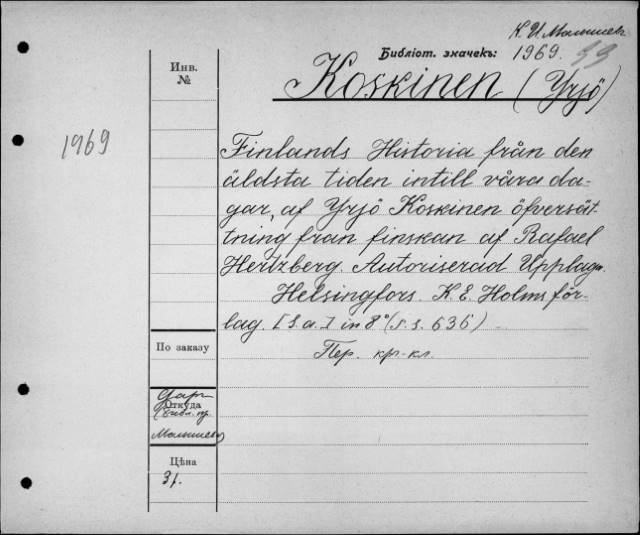 К. И. Малышев
Библіот. значекъ: 1969.
Инв.
№
Koskinen (Yrjö)
1969
Finlands Historia från den
äldsta tiden intill våra da-
gar, af Yrjö Koskinen öfversät-
tning från finskan af Rafael
Hertzberg. Autoriserad Upplaga.
Helsingfors. K. E. Holms för-
lag. [S. a.] in 8° (s. s. 636)
Пер. кр.-кл.
По заказу
Откуда
Малышева
Цѣна
3 р.